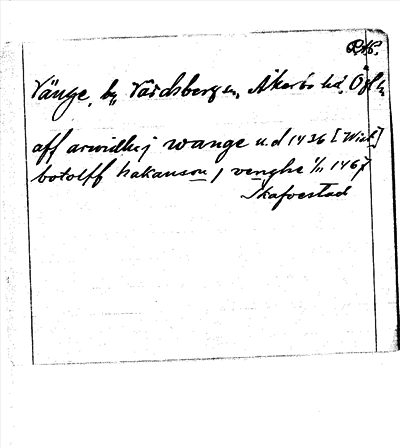 RAP.
Vänge, by, Vårdsbergs sn, Åkerbo hd, Ögl.
aff arwidh j wange u.d 1436 [Wisk]
botolff hakanson j venghe 1/11 1467
Skafvestad